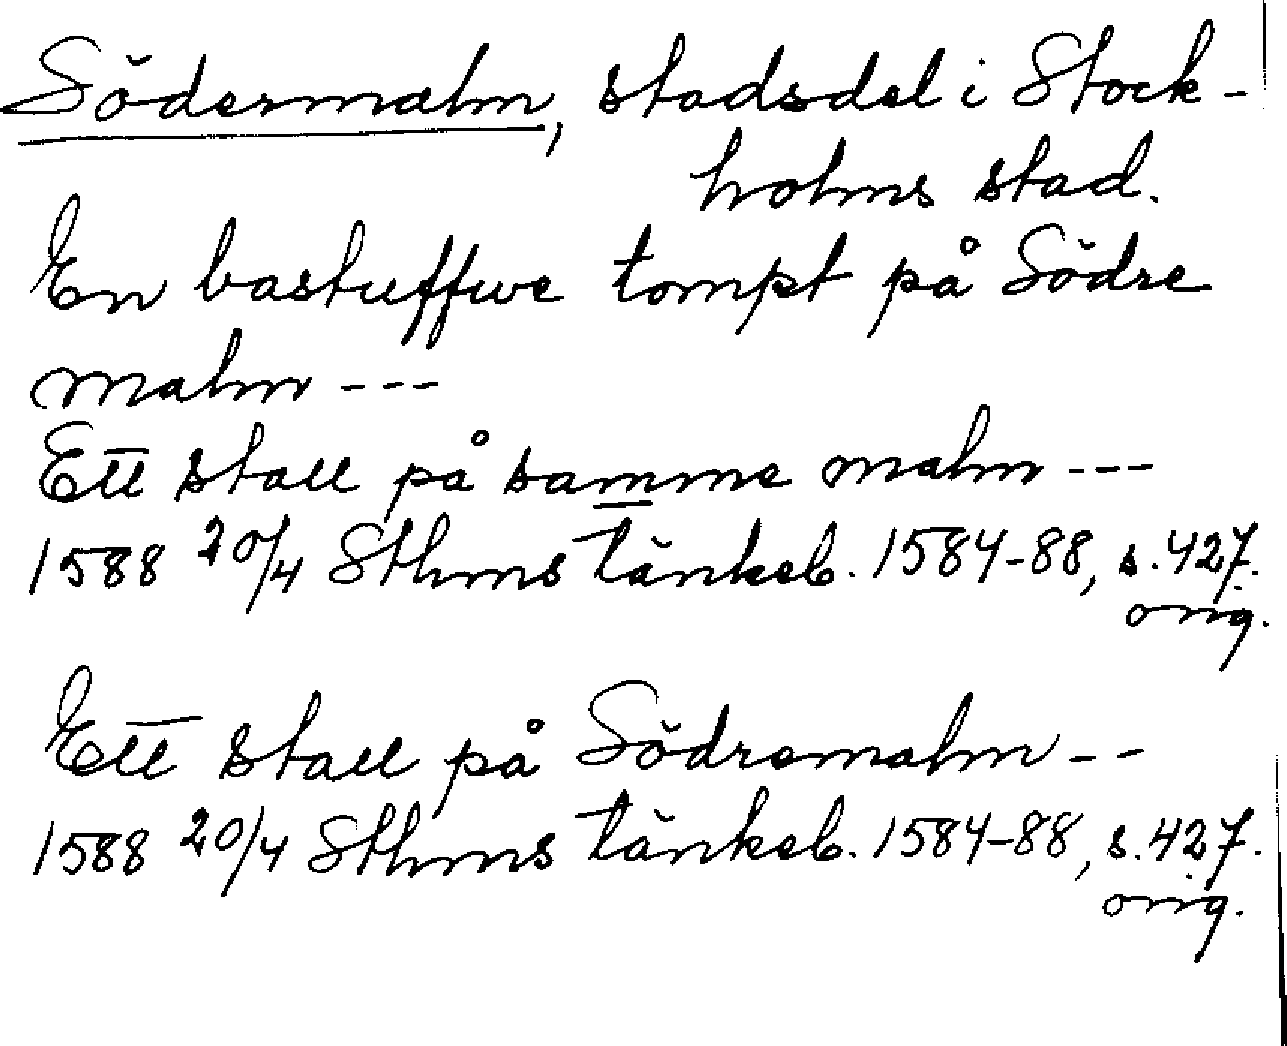 Södermalm, stadsdel i Stock-
holms stad.
En bastuffwe tompt på Södre
malm ---
Ett stall på samme malm ---
1588 20/4 Sthms tänkeb. 1584-88, s. 427.
orig.
Ett stall på Södremalm --
1588 20/4 Sthms tänkeb. 1584-88, s. 427.
orig.